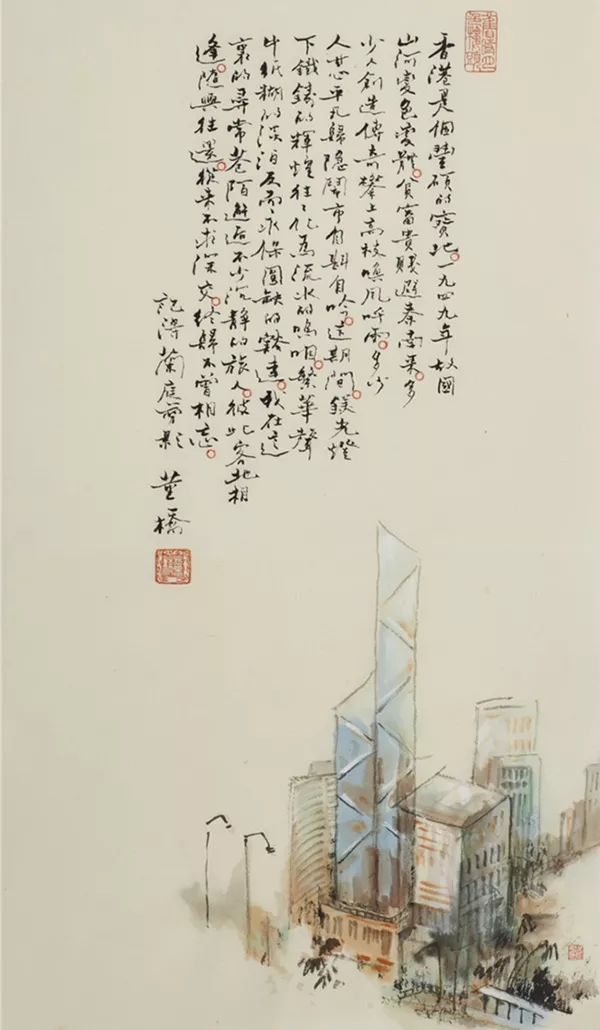 香港是個豐碩的寶地。一九四九年故國
山河變色變體。貧富貴賤避秦南來。多
少人創造傳奇攀上高枝喚風呼雨。多少
人甘心平凡歸隱鬧市自斟自吟。這期間鎂光燈
下鐵鑄的輝煌往往化為流水的嗚咽。繁華聲
中紙糊的淡泊反而永保圓缺的豁達。我在這
裏的尋常巷陌邂逅不少沉靜的旅人。彼此客地相
逢隨興往還。從來不求深交。終歸不曾相忘。
記得蘭庭影
董橋